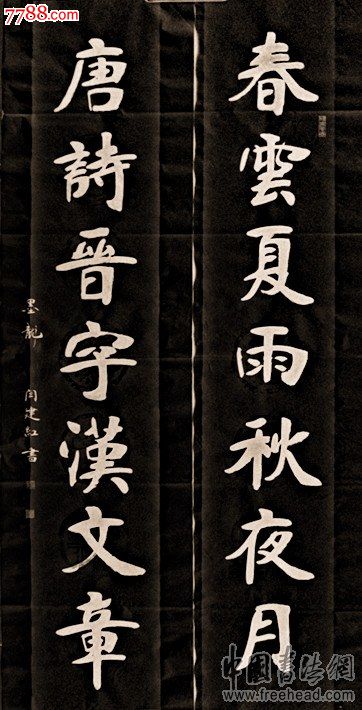 春雲夏雨秋夜月
唐詩晉字漢文章
墨龍 闫建紅書
7788.com
中國書法網
www.freehead.com